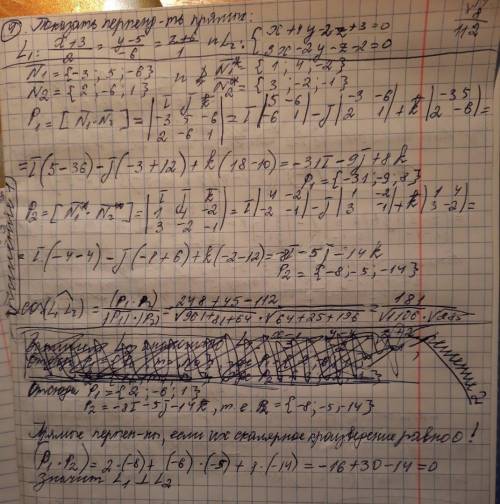 9) Показать перпенд-ть прямых:
L₁: (x+3)/2 = (y-5)/-6 = (z+6)/1 и L₂: { x+4y-2z+3=0
3x-2y-z-2=0
112
N̄₁={-3; 5; -6} и N₁*={1, 4, -2}
N̄₂={2, -6; 1} N₂*={3, -2; -1}
P₁=[N̄₁·N̄₂]= |i j k; -3 5 -6; 2 -6 1| = i|5 -6; -6 1| - j|-3 -6; 2 1| + k|-3 5; 2 -6| =
=i(5-36)-j(-3+12)+k(18-10)=-31i-9j+8k
P₁={-31;-9;8}
P₂=[N₁*·N₂*]= |i j k; 1 4 -2; 3 -2 -1| = i|4 -2; -2 -1| - j|1 -2; 3 -1| + k|1 4; 3 -2| =
=i(-4-4)-j(-1+6)+k(-2-12)=-8i-5j-14k
P₂={-8;-5;-14}
cos(L₁^L₂)= (P₁·P₂)/(|P₁|·|P₂|) = (248+45-112)/(√961+81+64·√64+25+196) = 181/(√1106·√285)
Решение 1
Решение 2
Отсюда P₁={2;-6;1}
P₂=-8i-5j-14k, т.е. P₂={-8;-5;-14}
Прямые перпен-ны, если их скалярное произведение равно 0!
(P₁·P₂)=2·(-8)+(-6)·(-5)+1·(-14)=-16+30-14=0
Значит L₁⊥L₂